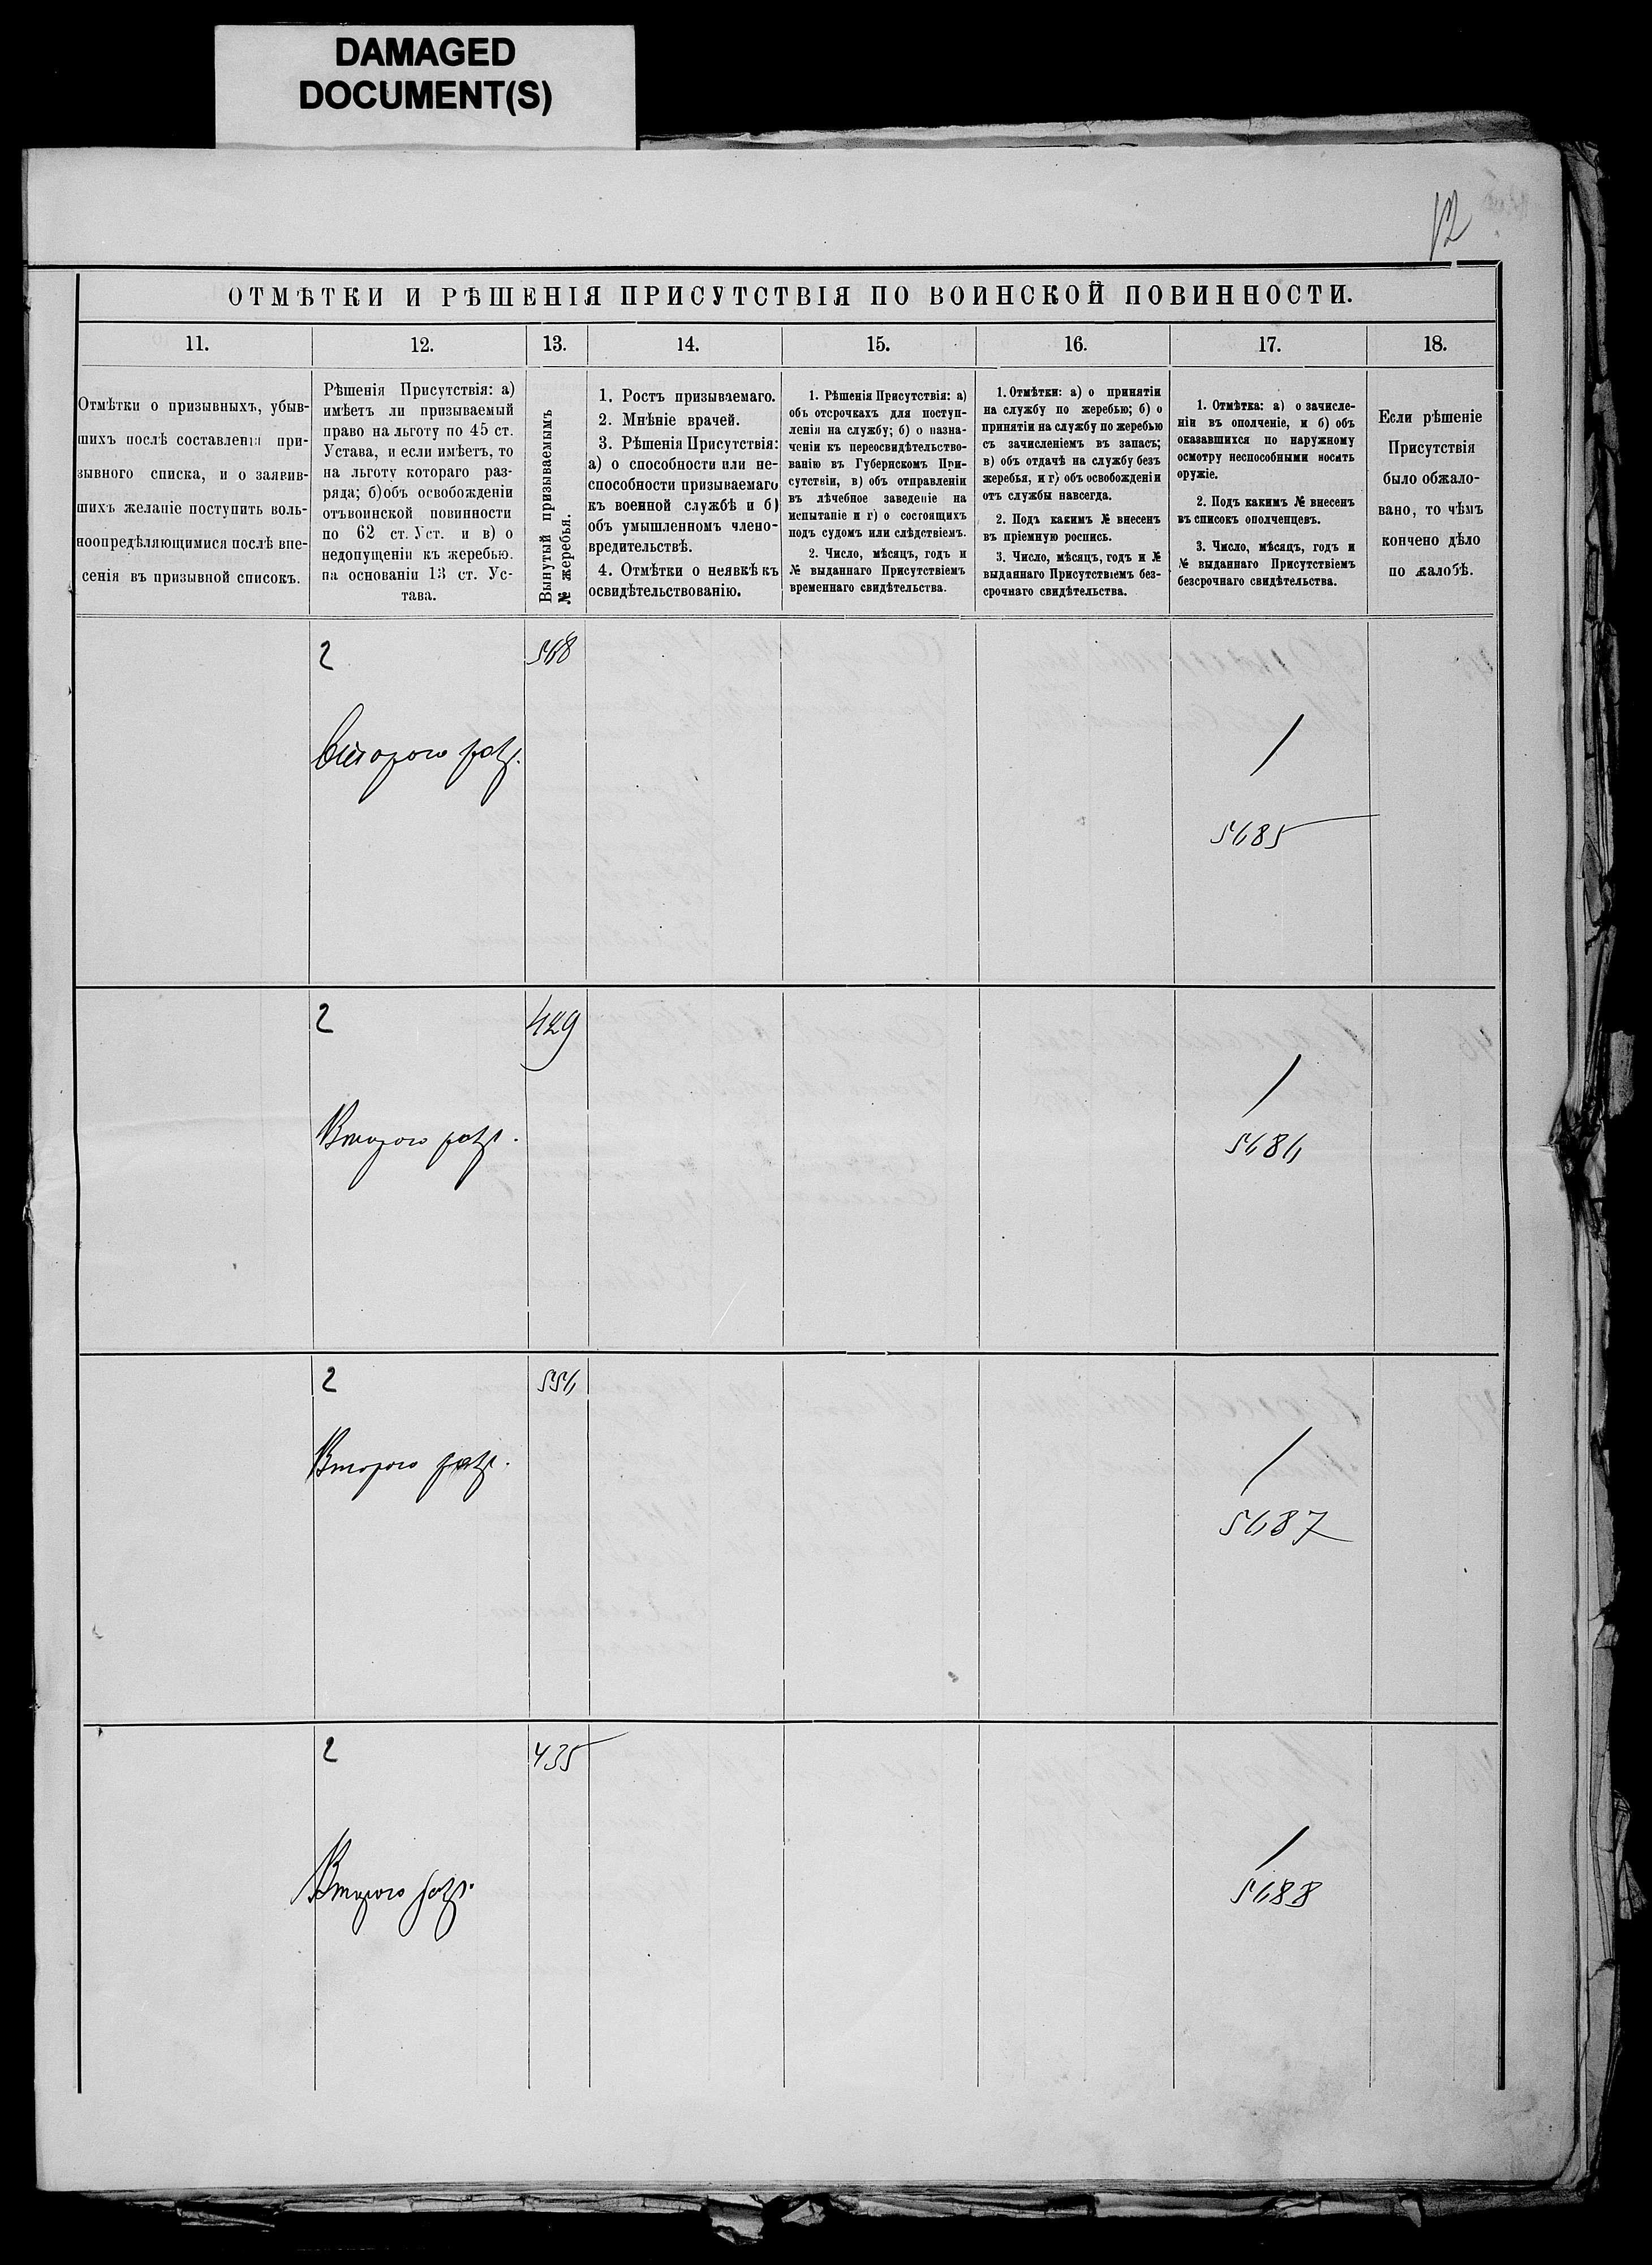 DAMAGED
DOCUMENT(S)
12
ОТМѢТКИ И РѢШЕНІЯ ПРИСУТСТВІЯ ПО ВОИНСКОЙ ПОВИННОСТИ.
11.
12.
13.
14.
15.
16.
17.
18.
Отмѣтки о призывныхъ, убыв-
шихъ послѣ составленія при-
зывного списка, и о заявив-
шихъ желаніе поступить воль-
ноопредѣляющимися послѣ вне-
сенія въ призывной списокъ.
Рѣшенія Присутствія: а)
имѣетъ ли призываемый
право на льготу по 45 ст.
Устава, и если имѣетъ, то
на льготу котораго раз-
ряда; б) объ освобожденіи
отъ воинской повинности
по 62 ст. Уст. и в) о
недопущеніи къ жеребью.
на основаніи 13 ст. Ус-
тава.
Вынутый призываемымъ
№ жеребья.
1. Ростъ призываемаго.
2. Мнѣніе врачей.
3. Рѣшенія Присутствія:
а) о способности или не-
способности призываемаго
къ военной службѣ и б)
объ умышленномъ члено-
вредительствѣ.
4. Отмѣтки о неявкѣ къ
освидѣтельствованію.
1. Рѣшенія Присутствія: а)
объ отсрочкахъ для поступ-
ленія на службу; б) о назна-
ченіи къ переосвидѣтельство-
ванію въ Губернскомъ При-
сутствіи, в) объ отправленіи
въ лѣчебное заведеніе на
испытаніе и г) о состоящихъ
подъ судомъ или слѣдствіемъ.
2. Число, мѣсяцъ, годъ и
№ выданнаго Присутствіемъ
временнаго свидѣтельства.
1. Отмѣтки: а) о принятіи
на службу по жеребью; б) о
принятіи на службу по жеребью
съ зачисленіемъ въ запасъ;
в) объ отдачѣ на службу безъ
жеребья, и г) объ освобожденіи
отъ службы навсегда.
2. Подъ какимъ № внесенъ
въ пріемную роспись.
3. Число, мѣсяцъ, годъ и №
выданнаго Присутствіемъ без-
срочнаго свидѣтельства.
1. Отмѣтка: а) о зачисле-
ніи въ ополченіе, и б) объ
оказавшихся по наружному
осмотру неспособными носить
оружіе.
2. Подъ какимъ № внесенъ
въ списокъ ополченцевъ.
3. Число, мѣсяцъ, годъ и
№ выданнаго Присутствіемъ
безсрочнаго свидѣтельства.
Если рѣшеніе
Присутствія
было обжало-
вано, то чѣмъ
кончено дѣло
по жалобѣ.
2
568
Второго разр.
/
5685
2
429
Второго разр.
/
5686
2
556
Второго разр.
/
5687
2
435
Второго разр.
/
5688